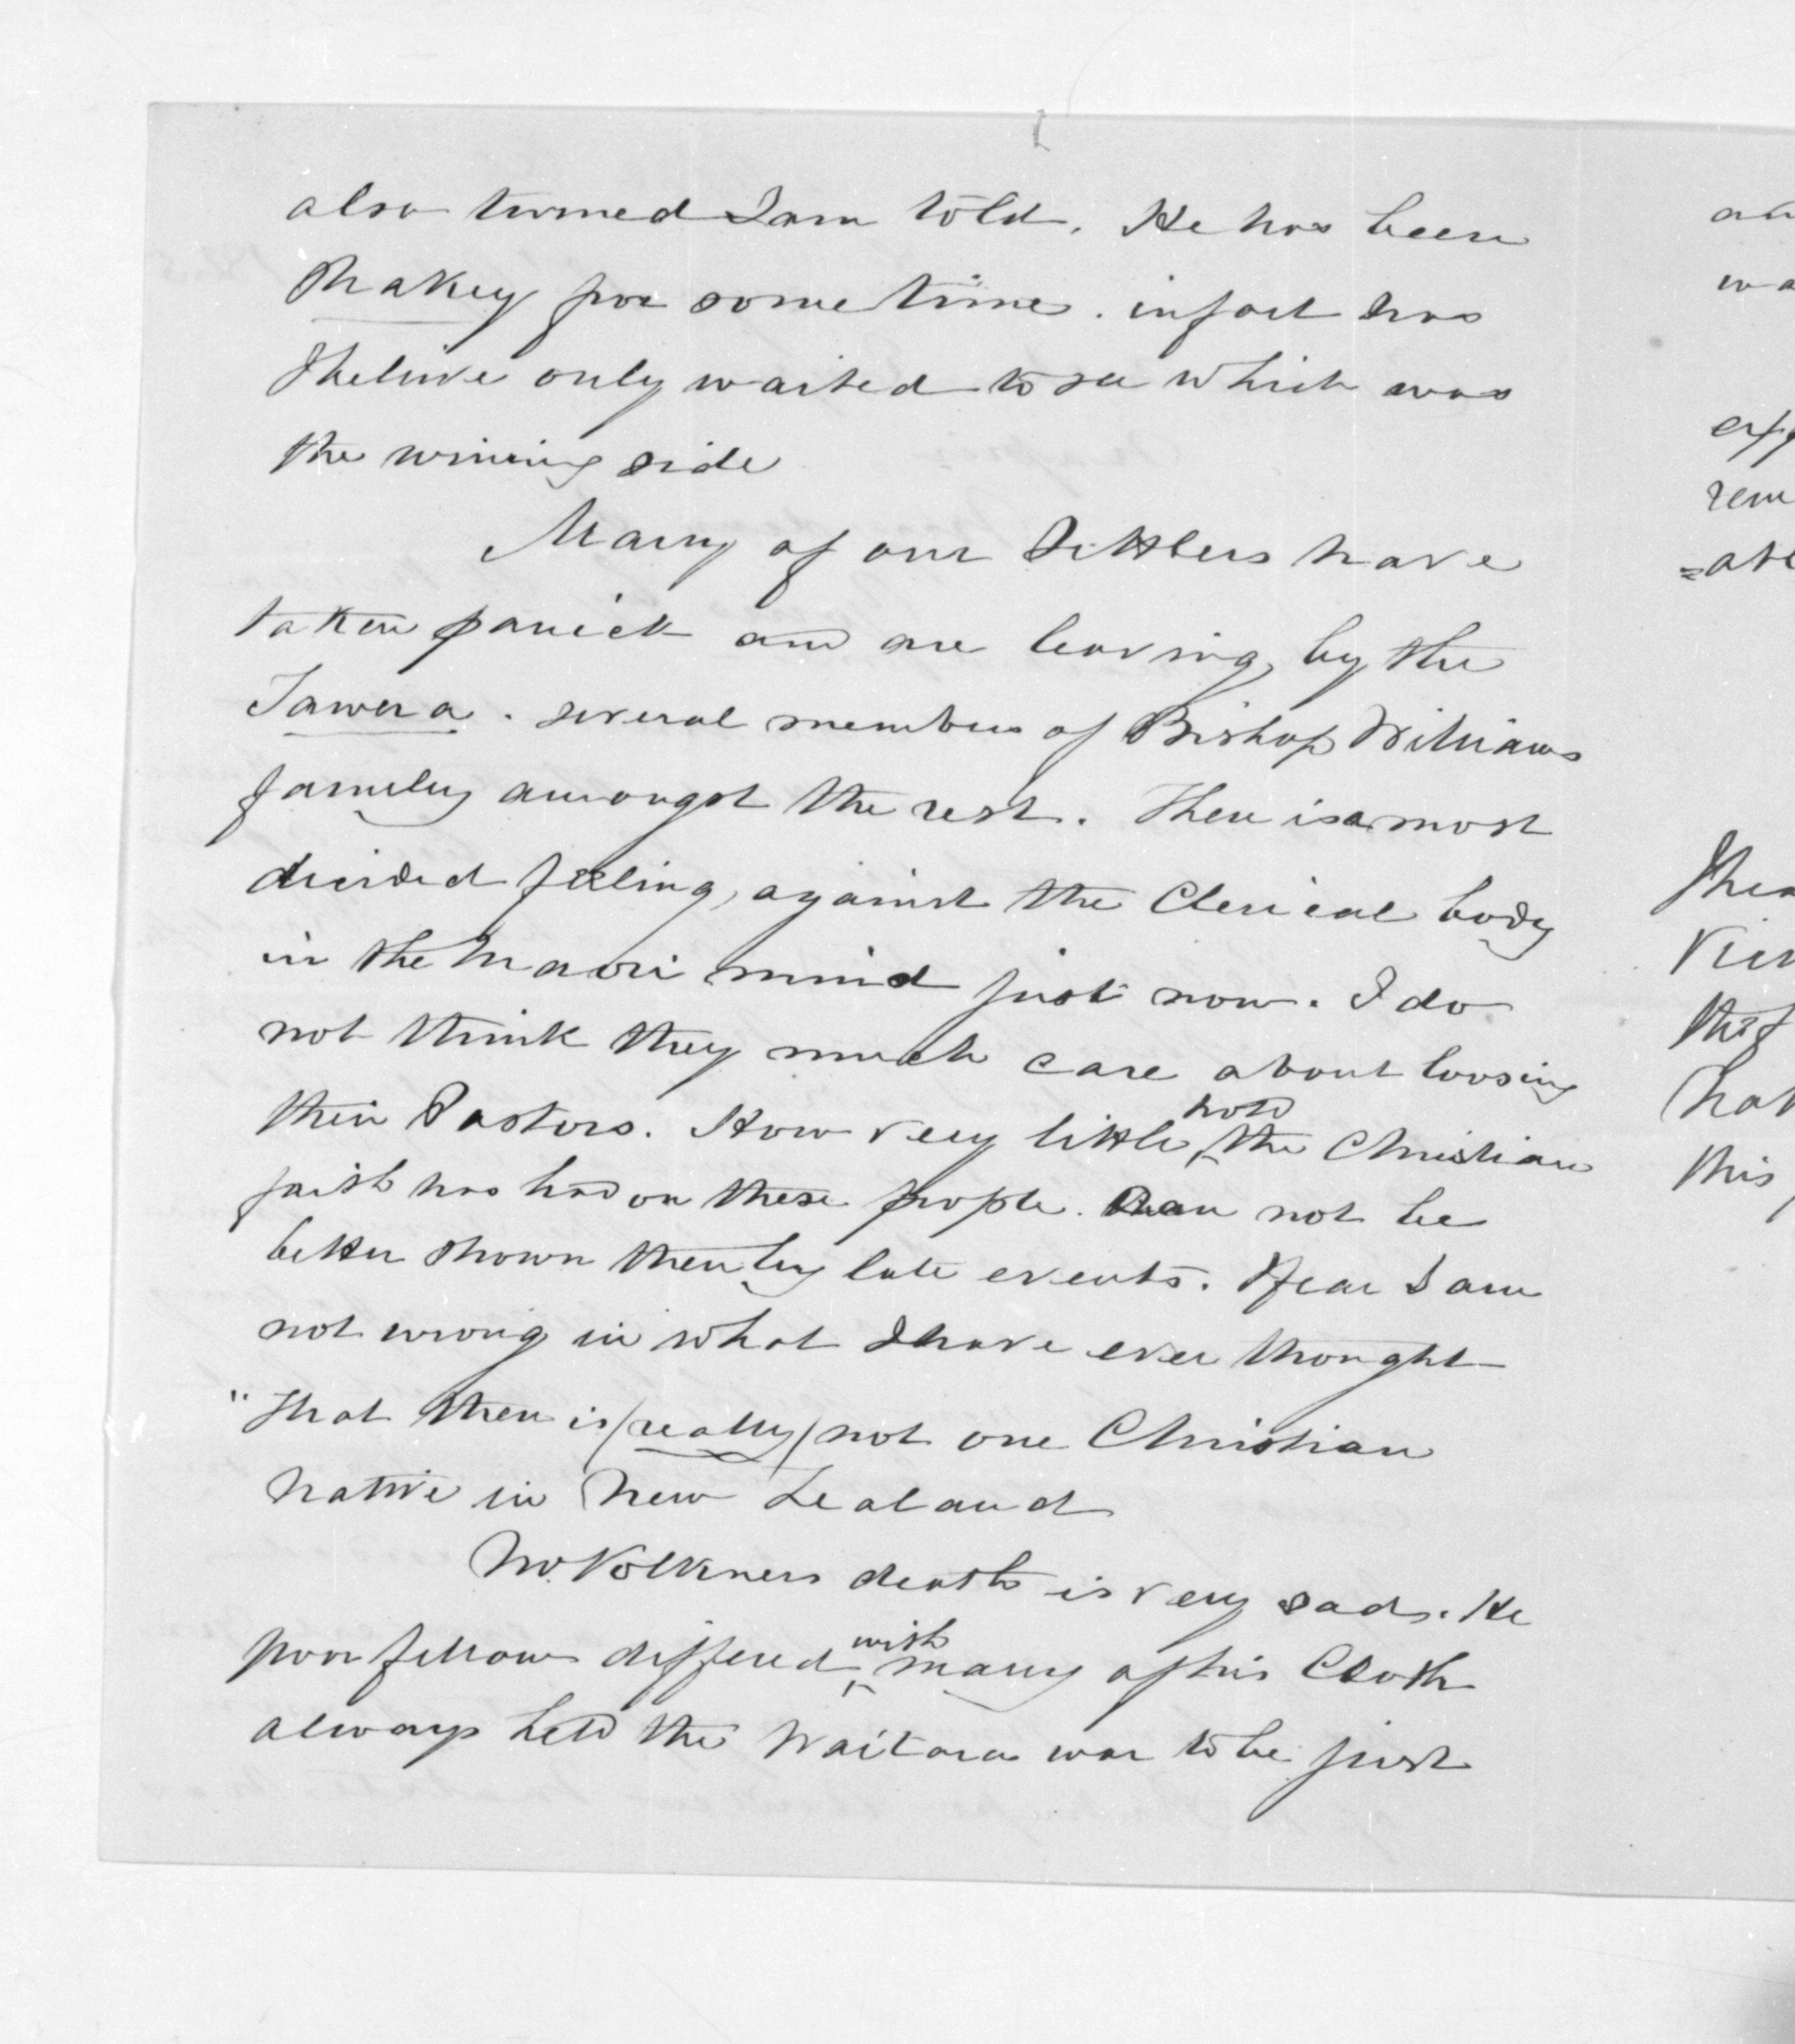 also turned I am told. He has been
Shakey for some time. infact has
I beleive only waited to see which was
the wining side
Many of our Settlers have
taken panick and are leaving by the
Tawera. several members of Bishop Williams
family amongst the rest. There is a most
decided feeling against the Clerical body
in the Maori mind just now. I do
not think they much care about loosing
their Pastors. How very little hold the Christian
faith has had on these people. Can not be
better shown then by late events. I fear I am
not wrong in what I have ever thought
"That there is (really) not one Christian
native in New Zealand
Mr. Volkners death is very sad. He
poor fellow differed with many of his Cloth
always held the Waitara war to be just